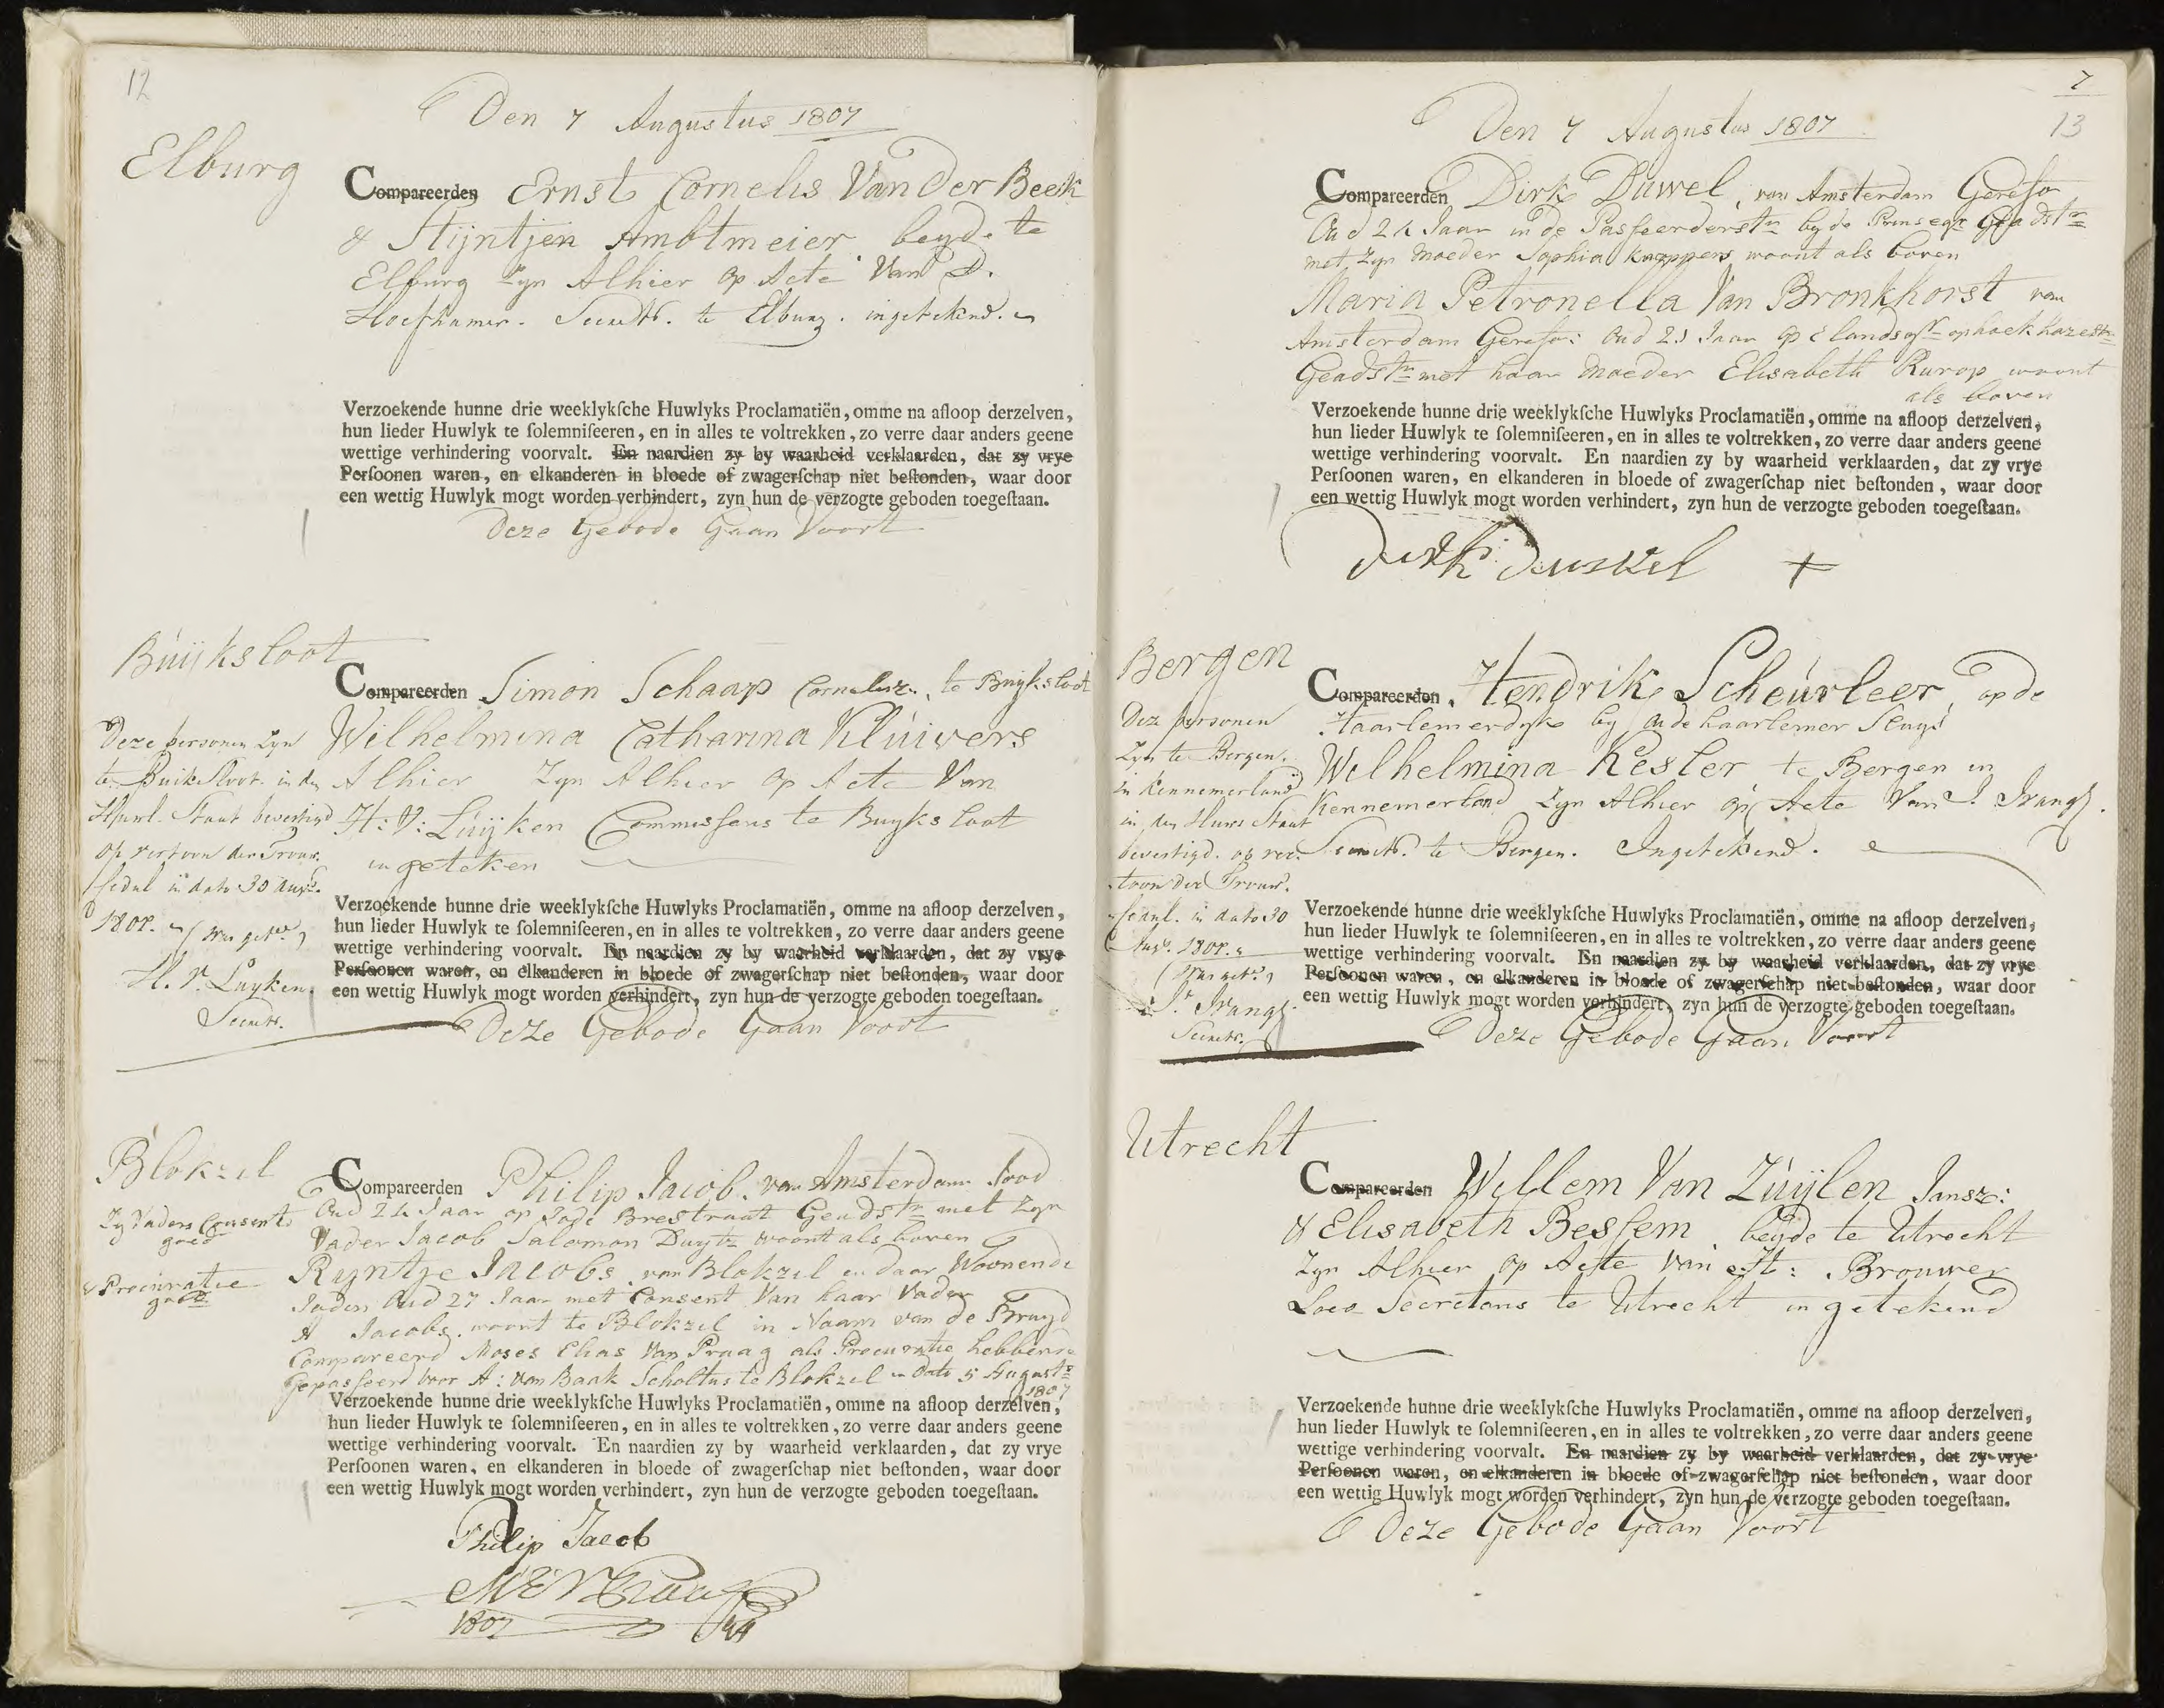 12
Den 7 Augustus 1807
Elburg
Compareerden Ernst Cornelis Van Der Beek
& Stijntjen Ambtmeier beyde te
Elburg zyn Alhier op Acte Van D.
Hoefhamer. Secrets. te Elburg. ingetekend.
Verzoekende hunne drie weeklykſche Huwlyks Proclamatiën, omme na afloop derzelven,
hun lieder Huwlyk te ſolemniſeeren, en in alles te voltrekken, zo verre daar anders geene
wettige verhindering voorvalt. En naardien zy by waarheid verklaarden, dat zy vrye
Perſoonen waren, en elkanderen in bloede of zwagerſchap niet beſtonden, waar door
een wettig Huwlyk mogt worden verhindert, zyn hun de verzogte geboden toegeſtaan.
Deze Gebode Gaan Voort
Buijksloot
Compareerden Simon Schaap Cornelisz. te Buyksloot
Wilhelmina Catharina Kluivers
Alhier Zyn Alhier op Acte Van
H: V: Luijken Commissaris te Buyksloot
ingeteken
Deze personen zyn
te Buiksloot in den
Huwl. Staat bevestigd
op vertoon der Trouw
Cedul in dato 30 Augs.
180
(was getd.)
H. V. Luyken
Secrets.
Verzoekende hunne drie weeklykſche Huwlyks Proclamatiën, omme na afloop derzelven,
hun lieder Huwlyk te ſolemniſeeren, en in alles te voltrekken, zo verre daar anders geene
wettige verhindering voorvalt. En naardien zy by waarheid verklaarden, dat zy vrye
Perſoonen waren, en elkanderen in bloede of zwagerſchap niet beſtonden, waar door
een wettig Huwlyk mogt worden verhindert, zyn hun de verzogte geboden toegeſtaan.
Deze Gebode Gaan Voort
Blokzil
Zy Vaders Consent
goed
& Procuratie
goed
Compareerden Philip Jacob van Amsterdam Jood
Oud 24 Jaar op Jode Brestraat Geadstr met zyn
Vader Jacob Salomon Duyts woont als boven
Ryntje Jacobs van Blokzil en daar Woonende
Joden Oud 27 Jaar met Consent Van haar Vader
A Jacobs woont te Blokzil in Naam van de Bruyd
Compareerd Moses Elias Van Praag als Procuratie hebbende
Gepasseerd voor A: van Baak Scholtus te Blokzil in dato 5 Augusts
1807
Verzoekende hunne drie weeklykſche Huwlyks Proclamatiën, omme na afloop derzelven,
hun lieder Huwlyk te ſolemniſeeren, en in alles te voltrekken, zo verre daar anders geene
wettige verhindering voorvalt. En naardien zy by waarheid verklaarden, dat zy vrye
Perſoonen waren, en elkanderen in bloede of zwagerſchap niet beſtonden, waar door
een wettig Huwlyk mogt worden verhindert, zyn hun de verzogte geboden toegeſtaan.
Philip Jacob
M E V Praag
1807
7
13
Den 7 Augustus 1807
Compareerden Dirk Duwel, van Amsterdam Gerefo
Oud 24 Jaar in de Passeerderstr by de Prinsegr Geadstr
met zyn Moeder Sophia Knappers woont als boven
Maria Petronella Van Bronkhorst van
Amsterdam Gerefo: Oud 21 Jaar op Elandsgr op hoek Hazestr
Geadstr met haar Moeder Elisabeth Rurop woont
als boven
Verzoekende hunne drie weeklykſche Huwlyks Proclamatiën, omme na afloop derzelven,
hun lieder Huwlyk te ſolemniſeeren, en in alles te voltrekken, zo verre daar anders geene
wettige verhindering voorvalt. En naardien zy by waarheid verklaarden, dat zy vrye
Perſoonen waren, en elkanderen in bloede of zwagerſchap niet beſtonden, waar door
een wettig Huwlyk mogt worden verhindert, zyn hun de verzogte geboden toegeſtaan.
Dirk Duwel +
Bergen
Compareerden Hendrik Scheurleer, op de
Haarlemerdyke by Oude haarlemer Sluys
Wilhelmina Kesler te Bergen in
Kennemerland zyn Alhier op Acte Van J. Srangs.
Secrets. te Bergen. Ingetekend.
Deze personen
Zyn te Bergen
in Kennemerland
in den Huws Staat
bevestigd. op ver-
toon der Trouw.
Cedul. in dato 30
Augs. 180
(was getd.)
J. Srangs.
Secrets.
Verzoekende hunne drie weeklykſche Huwlyks Proclamatiën, omme na afloop derzelven,
hun lieder Huwlyk te ſolemniſeeren, en in alles te voltrekken, zo verre daar anders geene
wettige verhindering voorvalt. En naardien zy by waarheid verklaarden, dat zy vrye
Perſoonen waren, en elkanderen in bloede of zwagerſchap niet beſtonden, waar door
een wettig Huwlyk mogt worden verhindert, zyn hun de verzogte geboden toegeſtaan.
Deze Gebode Gaan Voort
Utrecht
Compareerden Willem Van Zuijlen Jansz:
& Elisabeth Bessem beyde te Utrecht
Zyn Alhier op Acte van H: Brouwer
Loco Secretaris te Utrecht ingetekend
Verzoekende hunne drie weeklykſche Huwlyks Proclamatiën, omme na afloop derzelven,
hun lieder Huwlyk te ſolemniſeeren, en in alles te voltrekken, zo verre daar anders geene
wettige verhindering voorvalt. En naardien zy by waarheid verklaarden, dat zy vrye
Perſoonen waren, en elkanderen in bloede of zwagerſchap niet beſtonden, waar door
een wettig Huwlyk mogt worden verhindert, zyn hun de verzogte geboden toegeſtaan.
Deze Gebode Gaan Voort